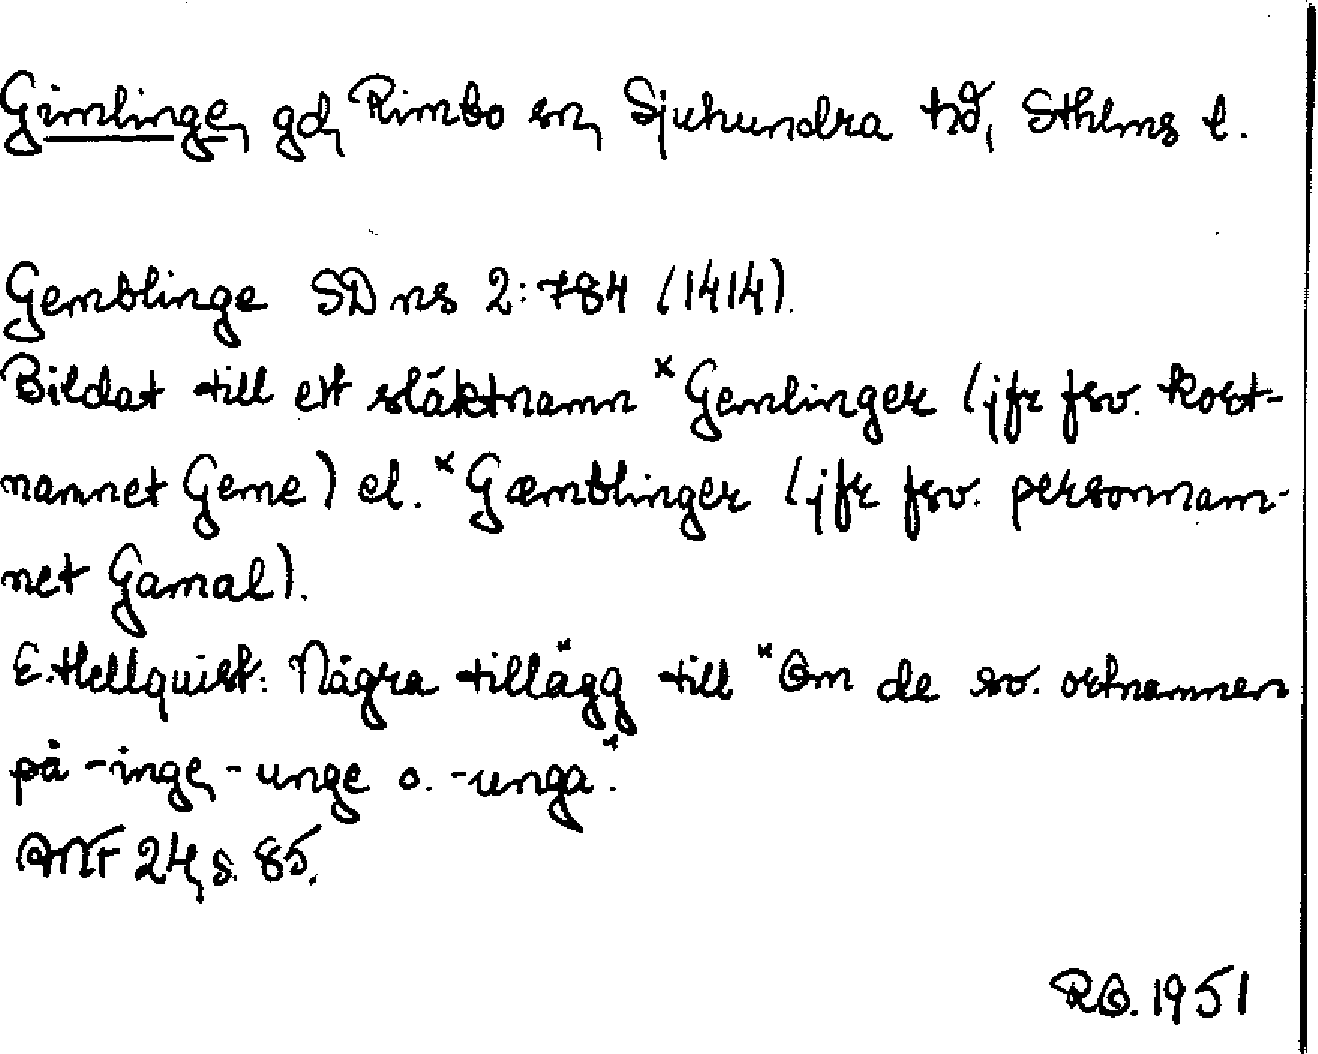 Gimlinge, gd, Rimbo sn, Sjuhundra hd, Sthlms l.
Gemblinge SD ns 2:784 (1414).
Bildat till ett släktnamn *Gemlinger (jfr fsv. kort-
namnet Geme) el. *Gæmblinger (jfr fsv. personnam-
net Gamal).
E. Hellquist: Några tillägg till "Om de sv. ortnamnen
på -inge, -unge o. -unga".
ANF 24, s. 85.
RO. 1951